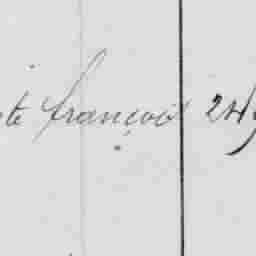 te françois 24